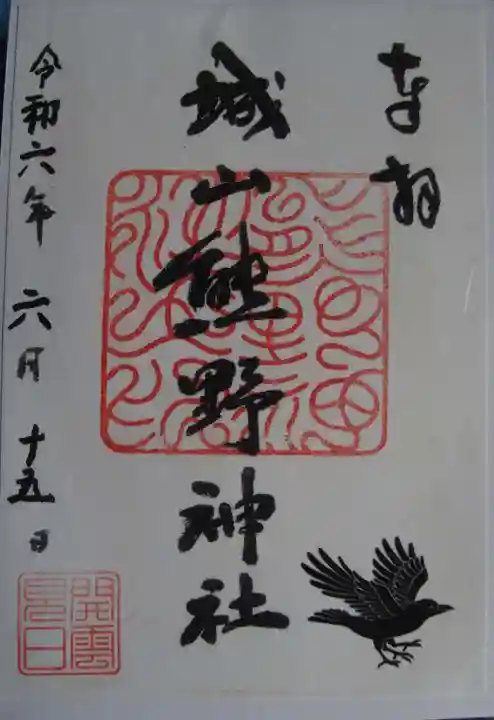 奉拝
城山熊野神社
令和六年 六月 十五日
開雲見日